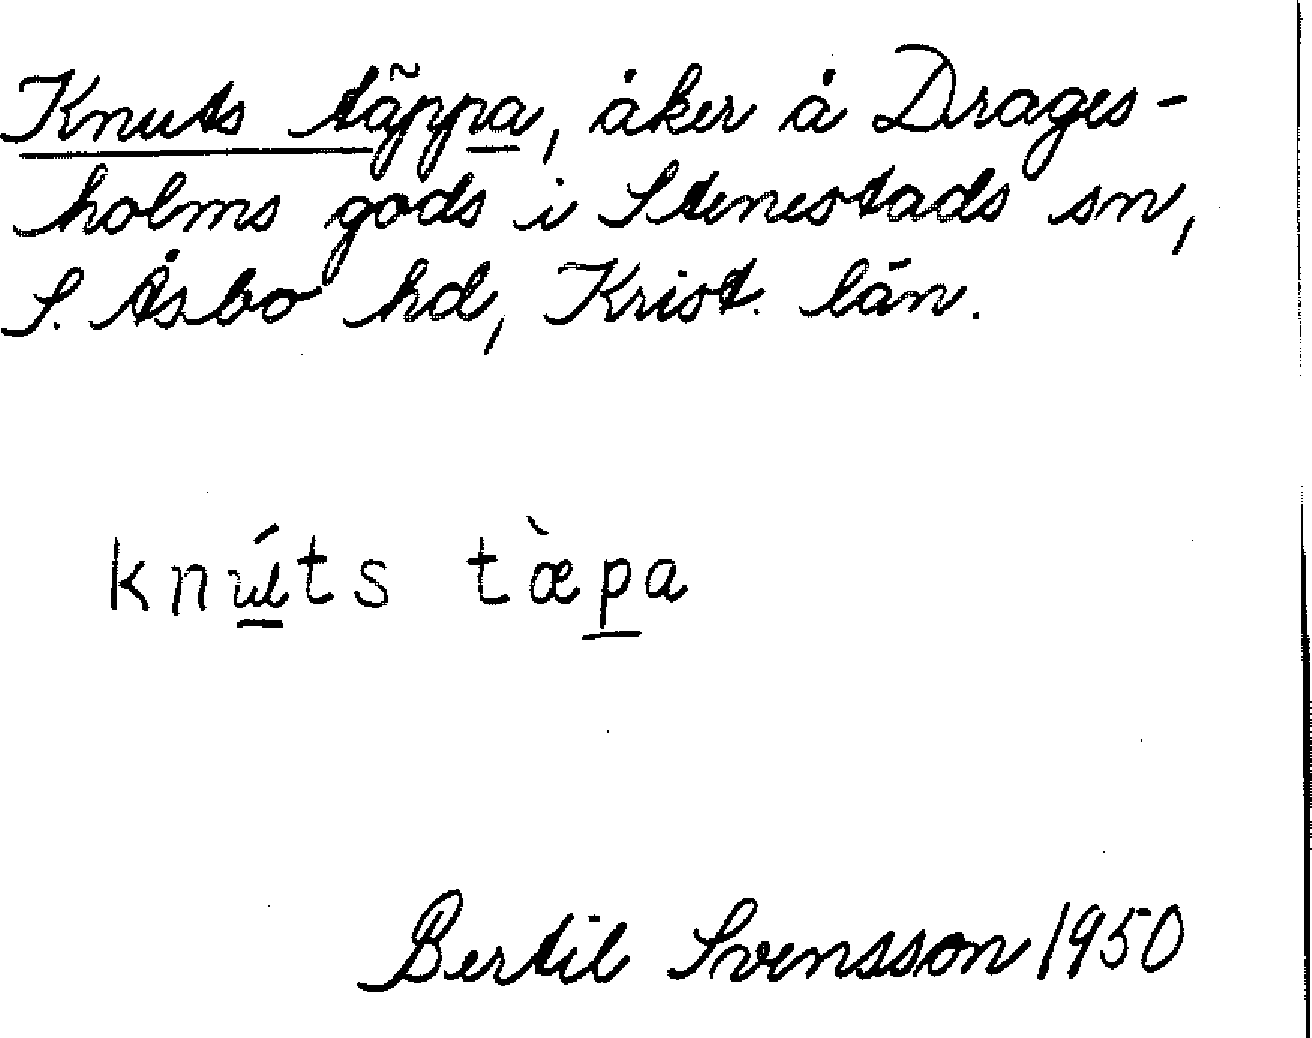 Knuts täppa, åker å Drages-
holms gods i Stenestads sn,
S. Åsbo hd, Krist. län.
knúts tæ̀pa
Bertil Svensson 1950